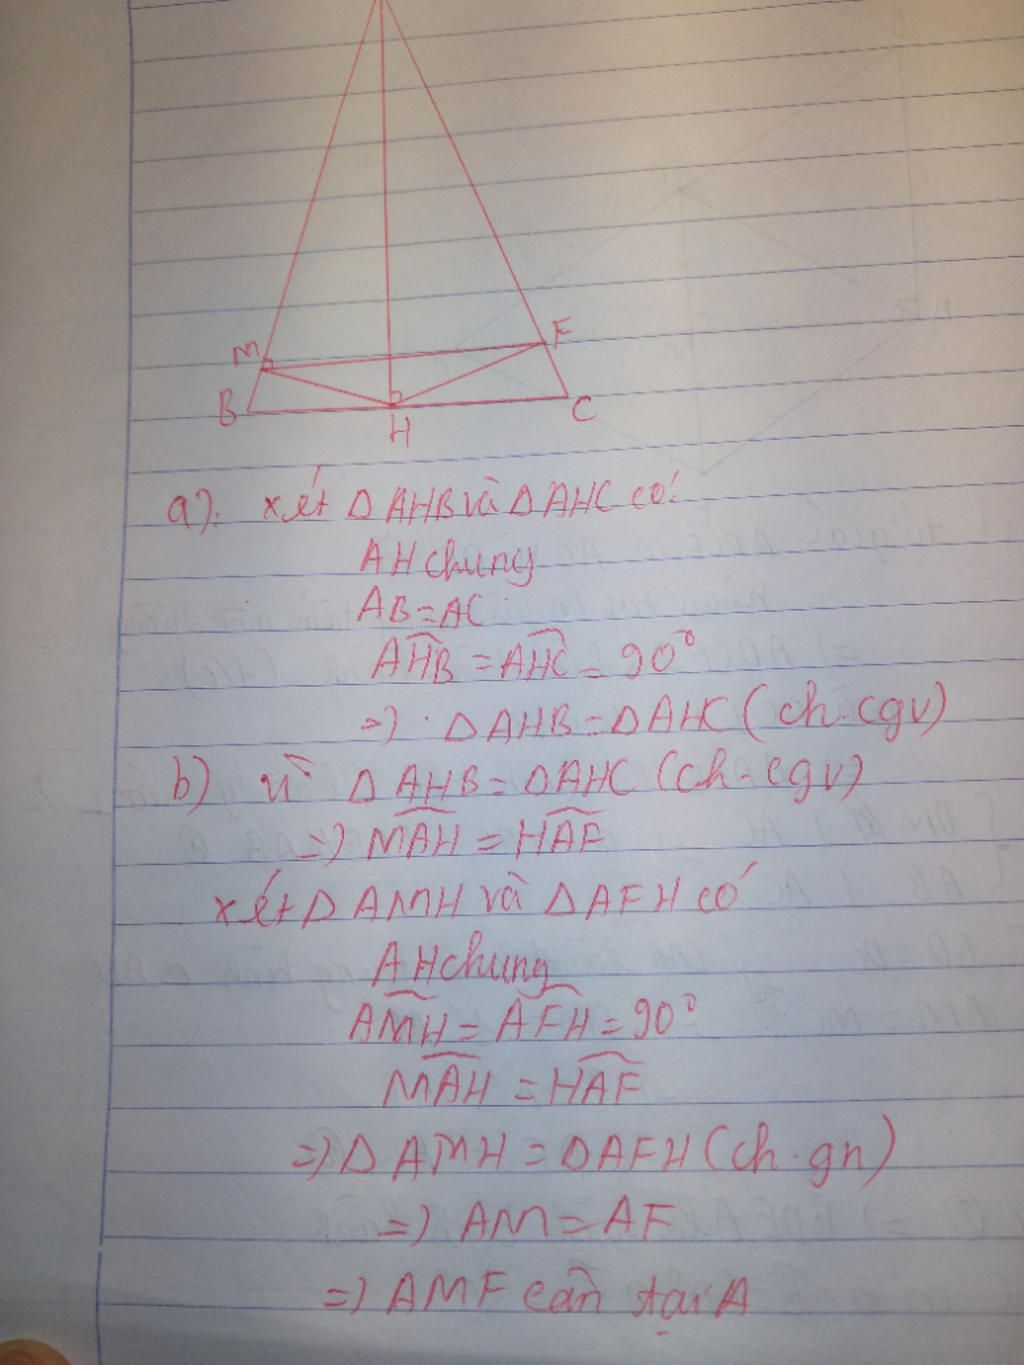 M
F
B
H
C
a). xét ΔAHB và ΔAHC có:
AH chung
AB = AC
AHB = AHC = 90°
=> . ΔAHB = ΔAHC (ch.cgv)
b) vì ΔAHB = ΔAHC (ch-cgv)
=> MAH = HAF
xét ΔAMH và ΔAFH có
AH chung
AMH = AFH = 90°
MAH = HAF
=> ΔAMH = ΔAFH (ch.gn)
=> AM = AF
=> AMF cân tại A